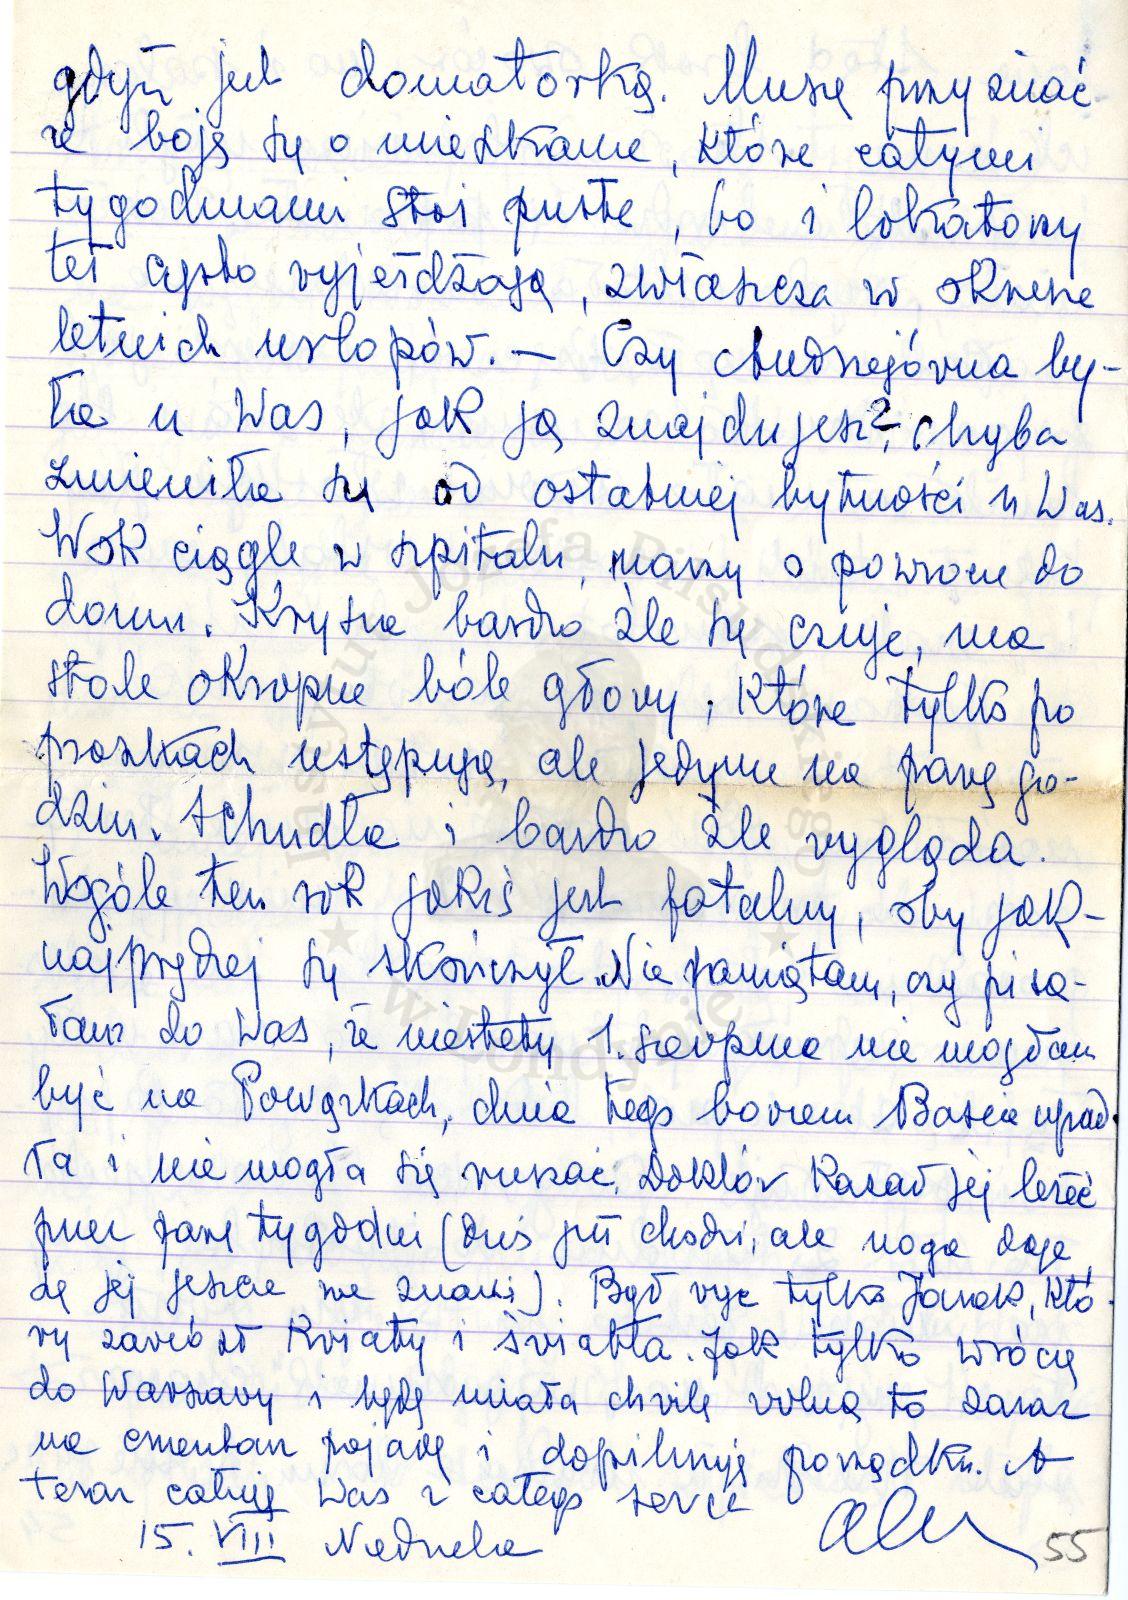 gdyż jest domatorką. Muszę przyznać
że boję się o mieszkanie, które całymi
tygodniami stoi puste, bo i lokatorzy
też często wyjeżdżają, zwłaszcza w okresie
letnich urlopów. — Czy Andrzejówna by-
ła u Was, jak ją znajdujesz?, chyba
zmieniła się od ostatniej bytności u Was.
Wok ciągle w szpitalu, marzy o powrocie do
domu. Krysia bardzo źle się czuje, ma
stale okropne bóle głowy, które tylko po
proszkach ustępują, ale jedynie na parę go-
dzin. Schudła i bardzo źle wygląda.
Wogóle ten rok jakiś jest fatalny, oby jak-
najprędzej się skończył. Nie pamiętam, czy pisa-
łam do Was, że niestety 1. sierpnia nie mogłam
być na Powązkach, dnia tego bowiem Basia upad-
ła i nie mogła się ruszać. Doktór kazał jej leżeć
przez parę tygodni (dziś już chodzi, ale noga daje
się jej jeszcze we znaki). Był więc tylko Janek, któ-
ry zawiózł kwiaty i światła. Jak tylko wrócę
do Warszawy i będę miała chwilę wolną to zaraz
na cmentarz pojadę i dopilnuję porządku. A
teraz całuję Was z całego serca
15. VIII Niedziela Ala
55
Instytut Józefa Piłsudskiego
w Londynie